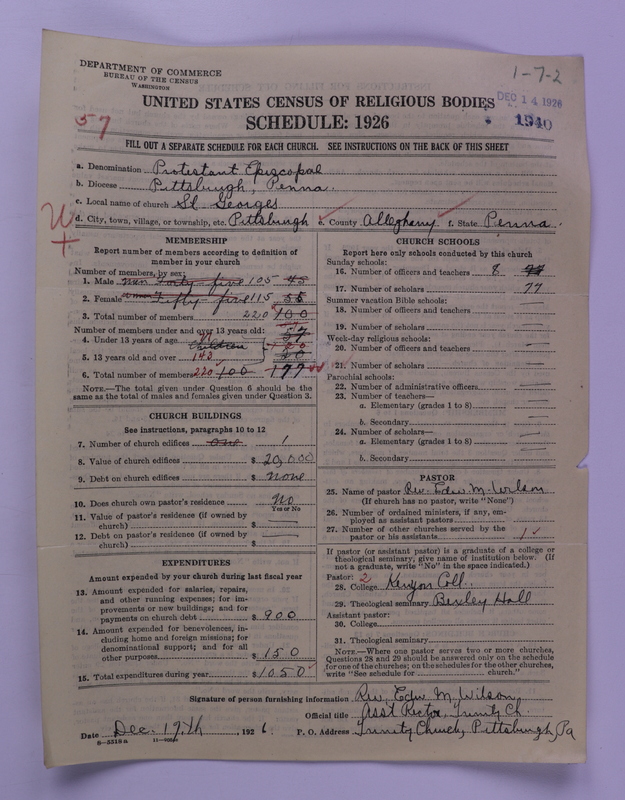 DEPARTMENT OF COMMERCE
BUREAU OF THE CENSUS
WASHINGTON
1-7-2
UNITED STATES CENSUS OF RELIGIOUS BODIES
DEC 14 1926
57
SCHEDULE: 1926
1940
FILL OUT A SEPARATE SCHEDULE FOR EACH CHURCH. SEE INSTRUCTIONS ON THE BACK OF THIS SHEET
a. Denomination Protestant Episcopal
b. Diocese Pittsburgh, Penna.
c. Local name of church St. Georges
d. City, town, village, or township, etc. Pittsburgh e. County Allegheny f. State Penna.
MEMBERSHIP
Report number of members according to definition of
member in your church
Number of members, by sex:
1. Male men Forty-five 105 45
2. Female women Fifty-five 115 55
3. Total number of members 220 100
Number of members under and over 13 years old:
4. Under 13 years of age children 57
5. 13 years old and over 143 20
6. Total number of members 220 100 177
NOTE.—The total given under Question 6 should be the
same as the total of males and females given under Question 3.
CHURCH BUILDINGS
See instructions, paragraphs 10 to 12
7. Number of church edifices one 1
8. Value of church edifices $ 20,000
9. Debt on church edifices $ none
10. Does church own pastor's residence No
Yes or No
11. Value of pastor's residence (if owned by
church) $
12. Debt on pastor's residence (if owned by
church) $
EXPENDITURES
Amount expended by your church during last fiscal year
13. Amount expended for salaries, repairs,
and other running expenses; for im-
provements or new buildings; and for
payments on church debt $ 900
14. Amount expended for benevolences, in-
cluding home and foreign missions; for
denominational support; and for all
other purposes $ 150
15. Total expenditures during year $ 1050
CHURCH SCHOOLS
Report here only schools conducted by this church
Sunday schools:
16. Number of officers and teachers 8
17. Number of scholars 77
Summer vacation Bible schools:
18. Number of officers and teachers
19. Number of scholars
Week-day religious schools:
20. Number of officers and teachers
21. Number of scholars
Parochial schools:
22. Number of administrative officers
23. Number of teachers—
a. Elementary (grades 1 to 8)
b. Secondary
24. Number of scholars—
a. Elementary (grades 1 to 8)
b. Secondary
PASTOR
25. Name of pastor Rev. Edw M. Wilson
(If church has no pastor, write "None")
26. Number of ordained ministers, if any, em-
ployed as assistant pastors
27. Number of other churches served by the
pastor or his assistants 1
If pastor (or assistant pastor) is a graduate of a college or
theological seminary, give name of institution below. (If
not a graduate, write "No" in the space indicated.)
Pastor: 2
28. College Kenyon Coll.
29. Theological seminary Bexley Hall
Assistant pastor:
30. College
31. Theological seminary
NOTE.—Where one pastor serves two or more churches,
Questions 28 and 29 should be answered only on the schedule
for one of the churches; on the schedules for the other churches,
write "See schedule for church."
Signature of person furnishing information Rev. Edw M. Wilson
Official title Asst Rector, Trinity Ch.
Date Dec. 17th, 1926. P. O. Address Trinity Church, Pittsburgh, Pa